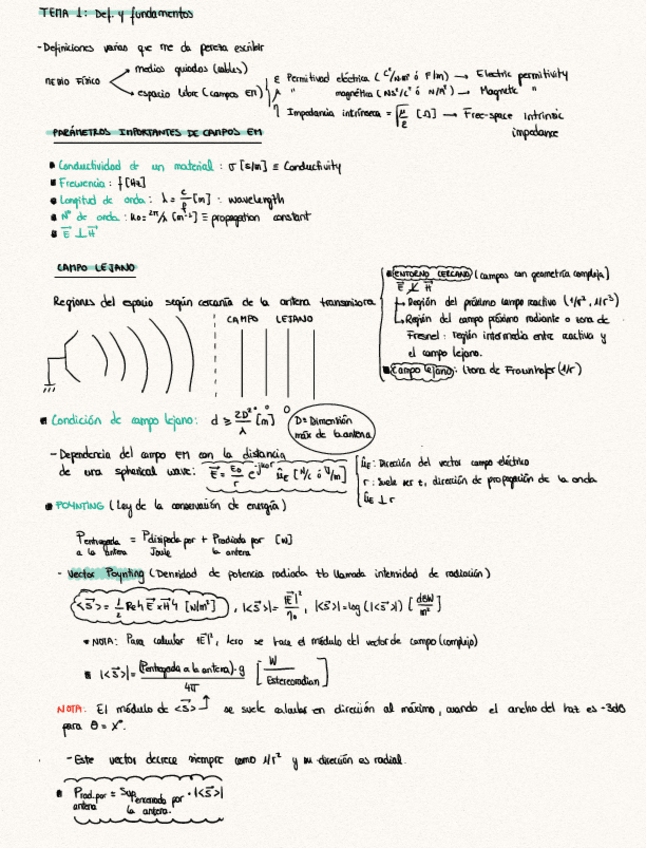 TEMA 1: Def. y fundamentos
- Definiciones varias que me da pereza escribir
MEDIO FÍSICO
medios guiados (cables)
espacio libre (campos EM)
ε Permitividad eléctrica (C²/Nm² ó F/m) → Electric permitivity
μ " magnética (Ns²/C² ó N/A²) → Magnetic "
η Impedancia intrínseca = √μ/ε [Ω] → Free-space Intrinsic impedance
PARÁMETROS IMPORTANTES DE CAMPOS EM
Conductividad de un material : σ [S/m] ≡ Conductivity
Frecuencia : f [Hz]
Longitud de onda : λ = c/f [m] : wavelength
Nº de onda : k₀ = 2π/λ [m⁻¹] ≡ propagation constant
E ⊥ H
CAMPO LEJANO
Regiones del espacio según cercanía de la antena transmisora
CAMPO LEJANO
ENTORNO CERCANO (campos con geometría compleja)
E ⊥̸ H
Región del próximo campo reactivo (1/r², 1/r³)
Región del campo próximo radiante o zona de
Fresnel : región intermedia entre reactiva y
el campo lejano.
Campo lejano : (zona de Fraunhofer (1/r)
Condición de campo lejano: d ≥ 2D²/λ [m]
D = Dimensión
máx de la antena
- Dependencia del campo EM con la distancia
de una spherical wave: E = E₀/r e^-jk₀r ûE [N/C ó V/m]
ûE : Dirección del vector campo eléctrico
r : suele ser z, dirección de propagación de la onda
ûE ⊥ r
POYNTING (Ley de la conservación de energía)
Pentregada a la antena = Pdisipada por Joule + Pradiada por la antena [W]
- Vector Poynting (Densidad de potencia radiada tb llamada intensidad de radiación)
<S> = 1/2 Re{E×H} [W/m²] , |<S>| = |E|²/η₀ , |<S>| = log (|<S>|) [dBW/m²]
NOTA: Para calcular |E|², se hace el módulo del vector de campo (complejo)
|<S>| = (Pentregada a la antena)·g / 4π [W/Estereoradian]
NOTA: El módulo de <S> se suele calcular en dirección al máximo, cuando el ancho del haz es -3dB
para θ = Xº.
- Este vector decrece siempre como 1/r² y su dirección es radial.
Prad. por antena = Sup encerrada por la antena. · |<S>|